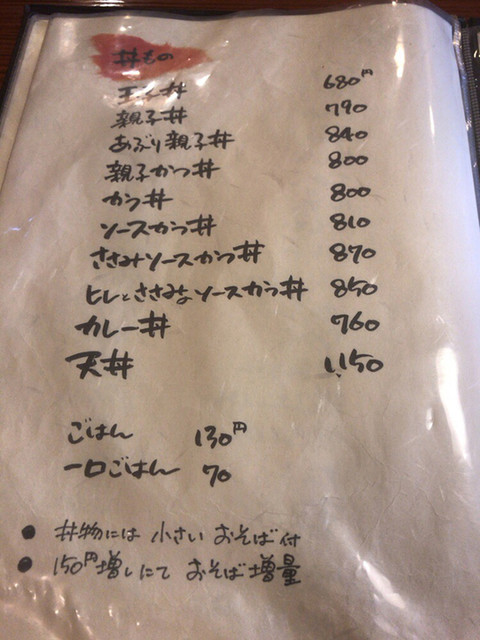 丼もの
玉子丼 680円
親子丼 790
あぶり親子丼 840
親子かつ丼 800
かつ丼 800
ソースかつ丼 810
ささみソースかつ丼 870
ヒレとささみなソースかつ丼 850
カレー丼 760
天丼 1,150
ごはん 130円
一口ごはん 70
● 丼物には 小さい おそば付
● 150円増しにて おそば増量